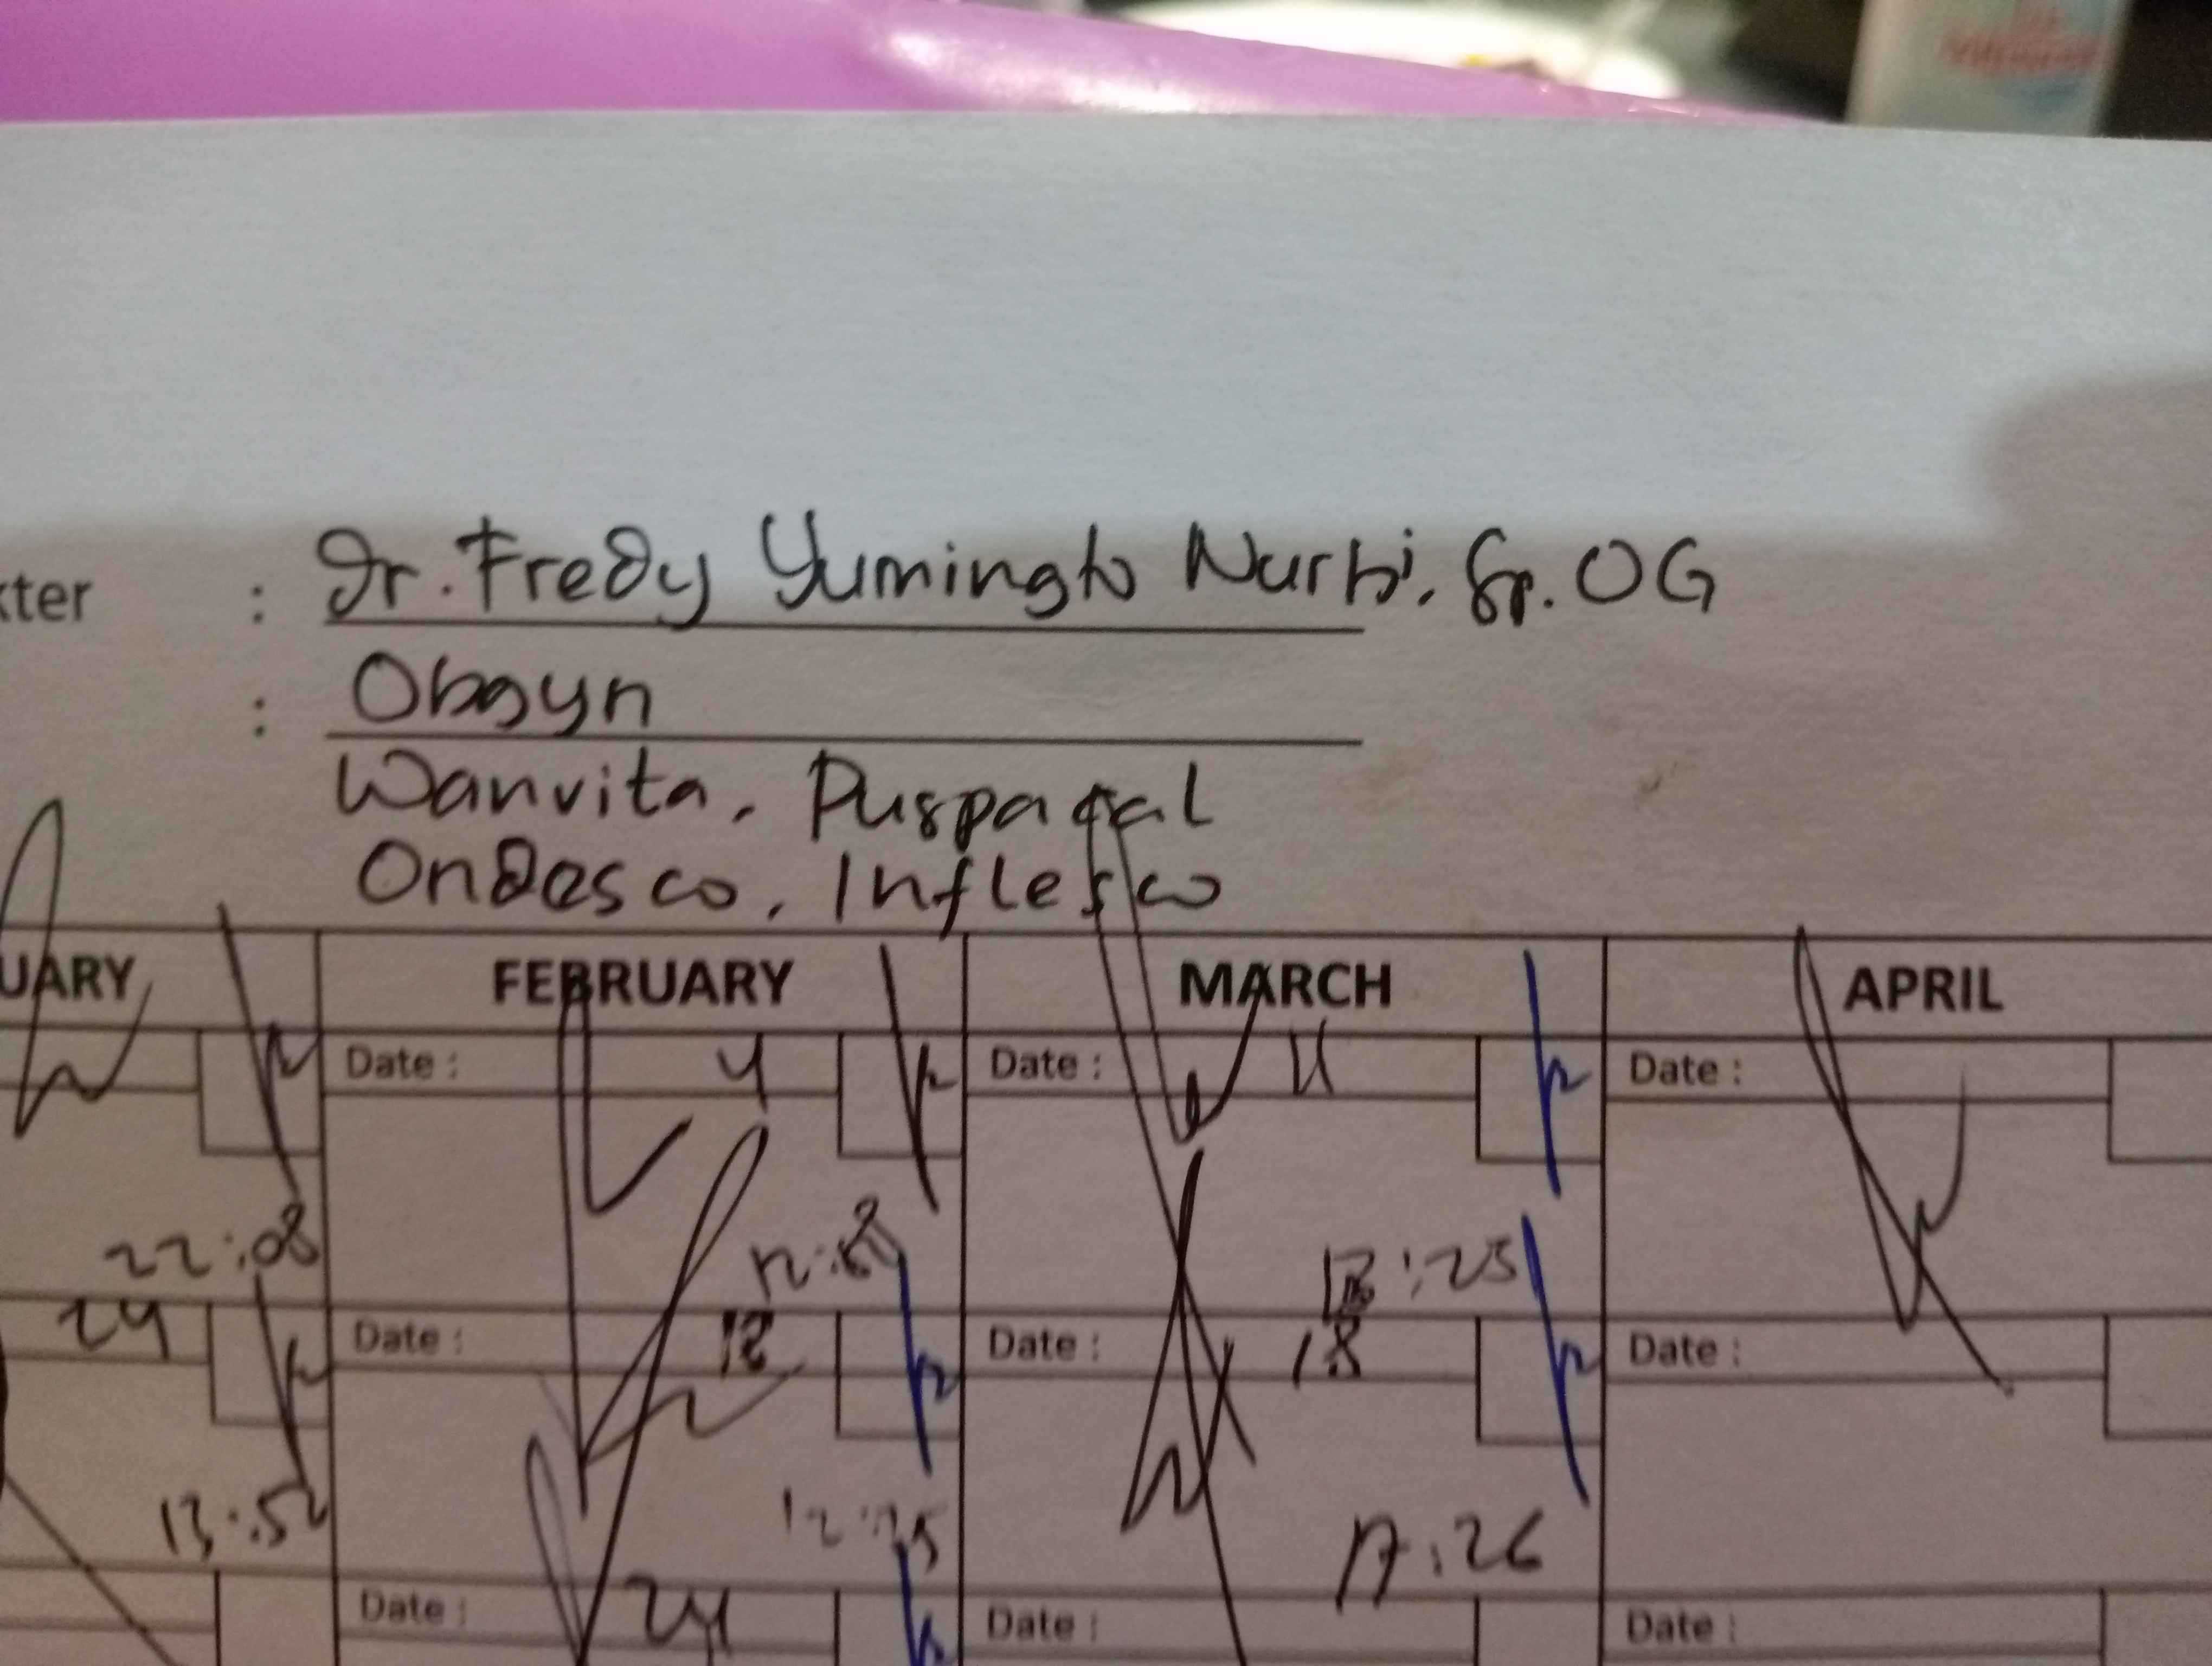 kter : Dr. Fredy Yumingto Nurhi, Sp. OG
: Obgyn
Wanvita, Puspagal
Ondesco, Inflesco
UARY FEBRUARY MARCH APRIL
Date : 4 Date : 11 Date :
22:08 13:25
24 Date : 12 Date : 18 Date :
13:52 12:35 17:26
Date : 24 Date : Date :